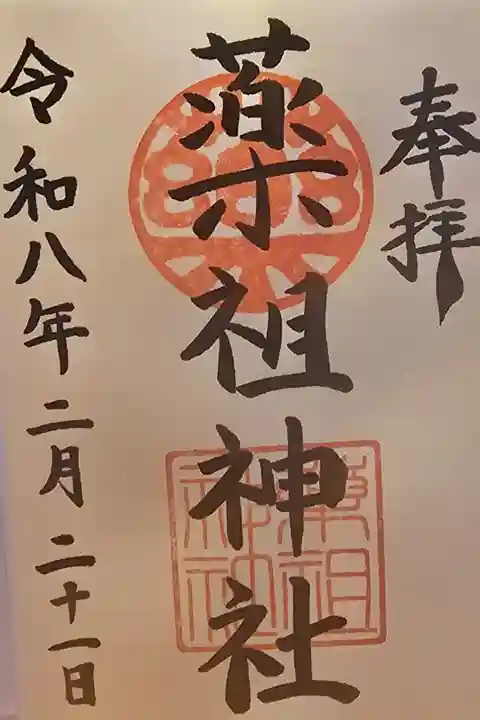 奉拝
薬祖神社
令和八年二月二十一日
薬祖
神社